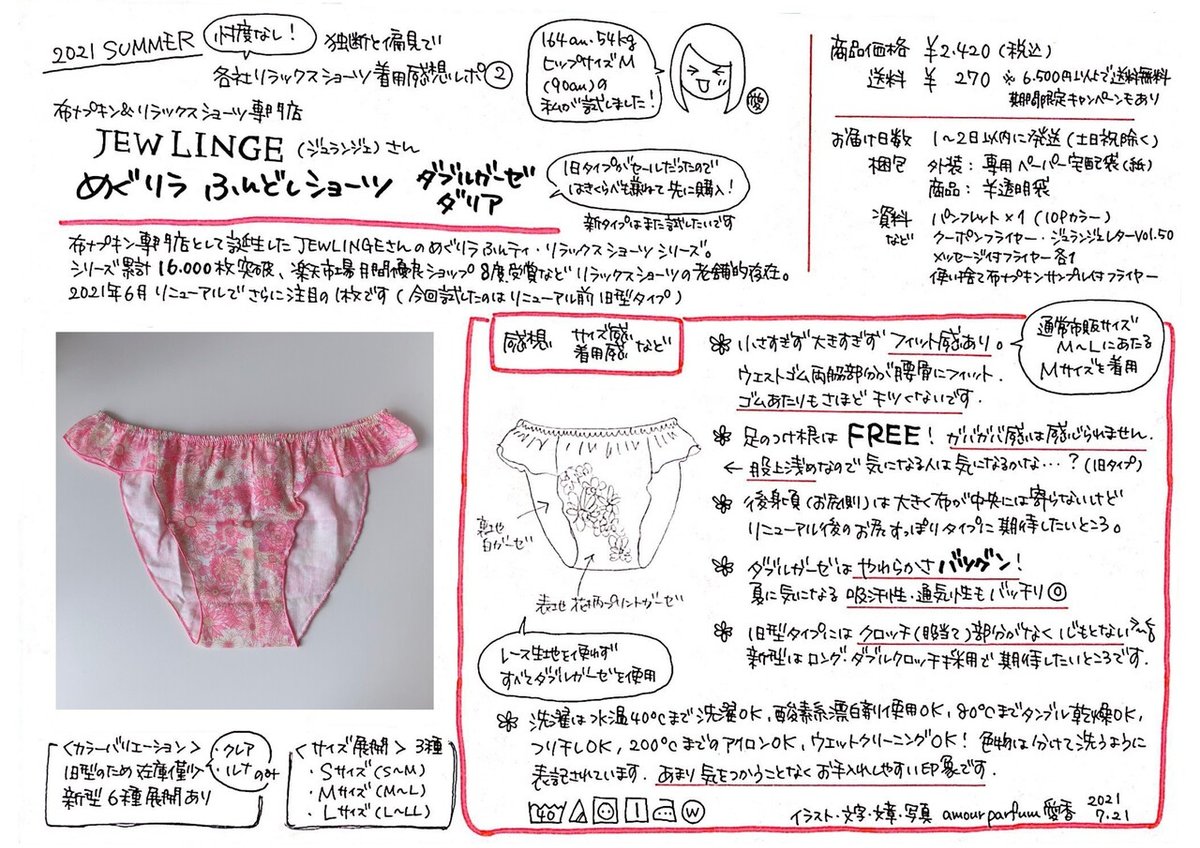 2021 SUMMER
忖度なし！
独断と偏見で
各社リラックスショーツ着用感想レポ②
164cm・54kg
ヒップサイズM
(90cm)の
私が試しました！
愛
布ナプキン&リラックスショーツ専門店
JEWLINGE（ジュランジェ）さん
めぐリラ ふんどしショーツ
ダブルガーゼ
ダリア
旧タイプがセールだったので
はきくらべも兼ねて先に購入！
新タイプはまた試したいです
布ナプキン専門店として誕生したJEWLINGEさんのめぐリラふんティ・リラックスショーツシリーズ。
シリーズ累計16.000枚突破、楽天市場月間優良ショップ8度受賞などリラックスショーツの老舗的存在。
2021年6月リニューアルでさらに注目の1枚です（今回試したのはリニューアル前旧型タイプ）
商品価格 ￥2.420（税込）
送料 ￥ 270 ※6.500円以上で送料無料
期間限定キャンペーンもあり
お届け日数 1〜2日以内に発送（土日祝除く）
梱包 外装：専用ペーパー宅配袋（紙）
商品：半透明袋
資料 パンフレット×1（10Pカラー）
など クーポンフライヤー・ジュランジェレターVol.50
メッセージ付フライヤー各1
使い捨て布ナプキンサンプル付フライヤー
感想 サイズ感
着用感 など
通常市販サイズ
M〜Lにあたる
Mサイズを着用
小さすぎず大きすぎず フィット感あり。
ウエストゴム両脇部分が腰骨にフィット.
ゴムあたりもさほどキツくないです.
足のつけ根は FREE！ガバガバ感は感じられません.
← 股上浅めなので気になる人は気になるかな…？（旧タイプ）
後身頃（お尻側）は大きく布が中央には寄らないけど
リニューアル後のお尻すっぽりタイプに期待したいところ。
ダブルガーゼはやわらかさバツグン！
夏に気になる 吸汗性・通気性もバッチリ◎
旧型タイプにはクロッチ（股当て）部分がなく心もとない
新型はロング・ダブルクロッチ採用で期待したいところです.
裏地
白ガーゼ
表地 花柄プリントガーゼ
レース生地を使わず
すべてダブルガーゼを使用
洗濯は水温40℃まで洗濯OK, 酸素系漂白剤使用OK, 80℃までタンブル乾燥OK,
つり干しOK, 200℃までのアイロンOK, ウエットクリーニングOK！ 色物は分けて洗うように
表記されています. あまり気をつかうことなくお手入れしやすい印象です.
40
W
イラスト・文字・文章・写真 amour parfum 愛香 2021
7.21
〈カラーバリエーション〉
旧型のため在庫僅少
・クレア
・ルナ のみ
新型6種展開あり
〈サイズ展開〉3種
・Sサイズ（S〜M）
・Mサイズ（M〜L）
・Lサイズ（L〜LL）